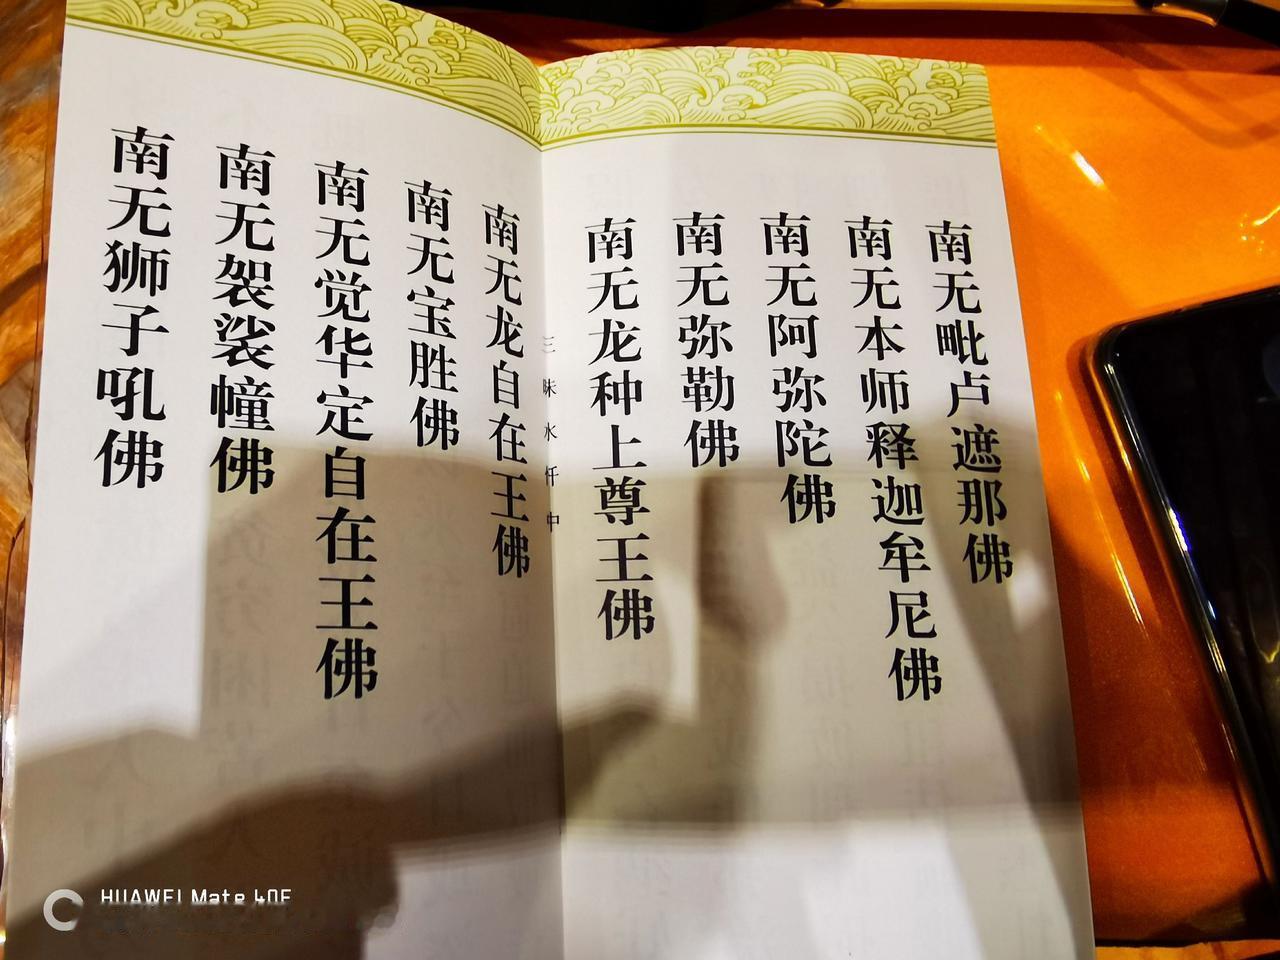 南无毗卢遮那佛
南无本师释迦牟尼佛
南无阿弥陀佛
南无弥勒佛
南无龙种上尊王佛
三昧水忏中
南无龙自在王佛
南无宝胜佛
南无觉华定自在王佛
南无袈裟幢佛
南无狮子吼佛
HUAWEI Mate 40E